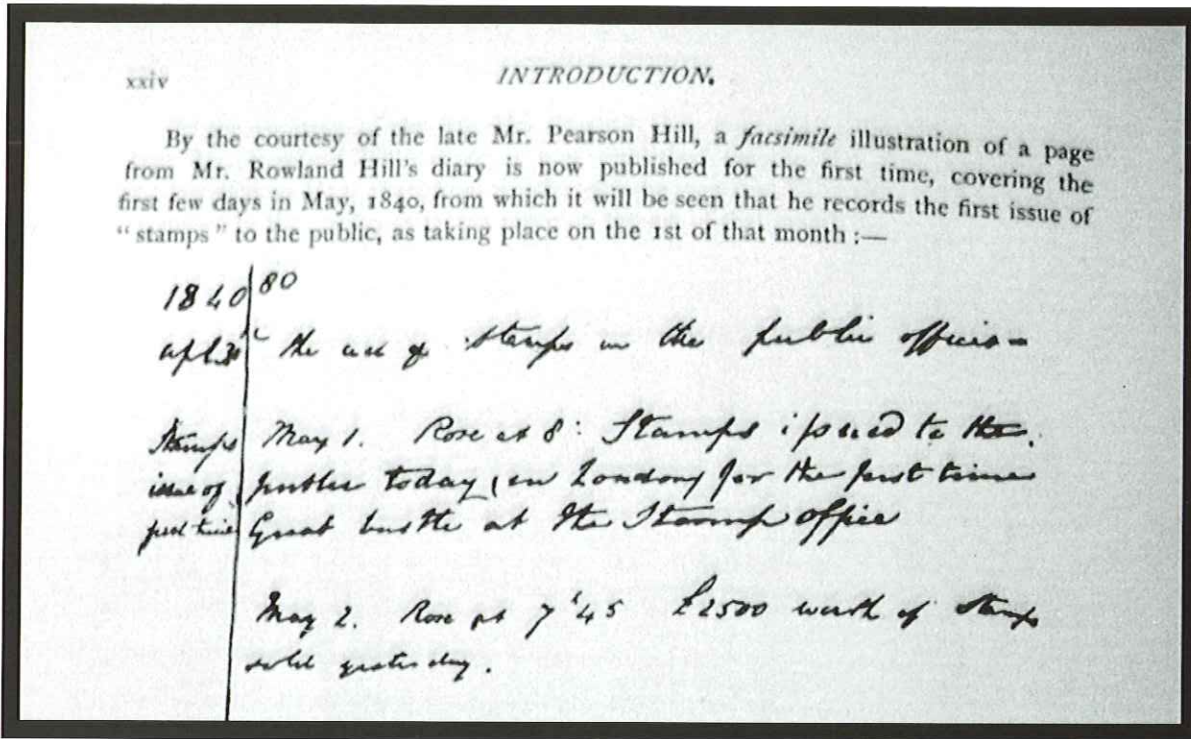 xxiv INTRODUCTION.
By the courtesy of the late Mr. Pearson Hill, a facsimile illustration of a page
from Mr. Rowland Hill's diary is now published for the first time, covering the
first few days in May, 1840, from which it will be seen that he records the first issue of
“ stamps ” to the public, as taking place on the 1st of that month :—
1840 80
the use of Stamps in the public offices
Stamps May 1. Rose at 8: Stamps issued to the
issue of public today (in London) for the first time
first time Great bustle at the Stamp office
May 2. Rose at 7.45 £2500 worth of Stamps
sold yesterday.